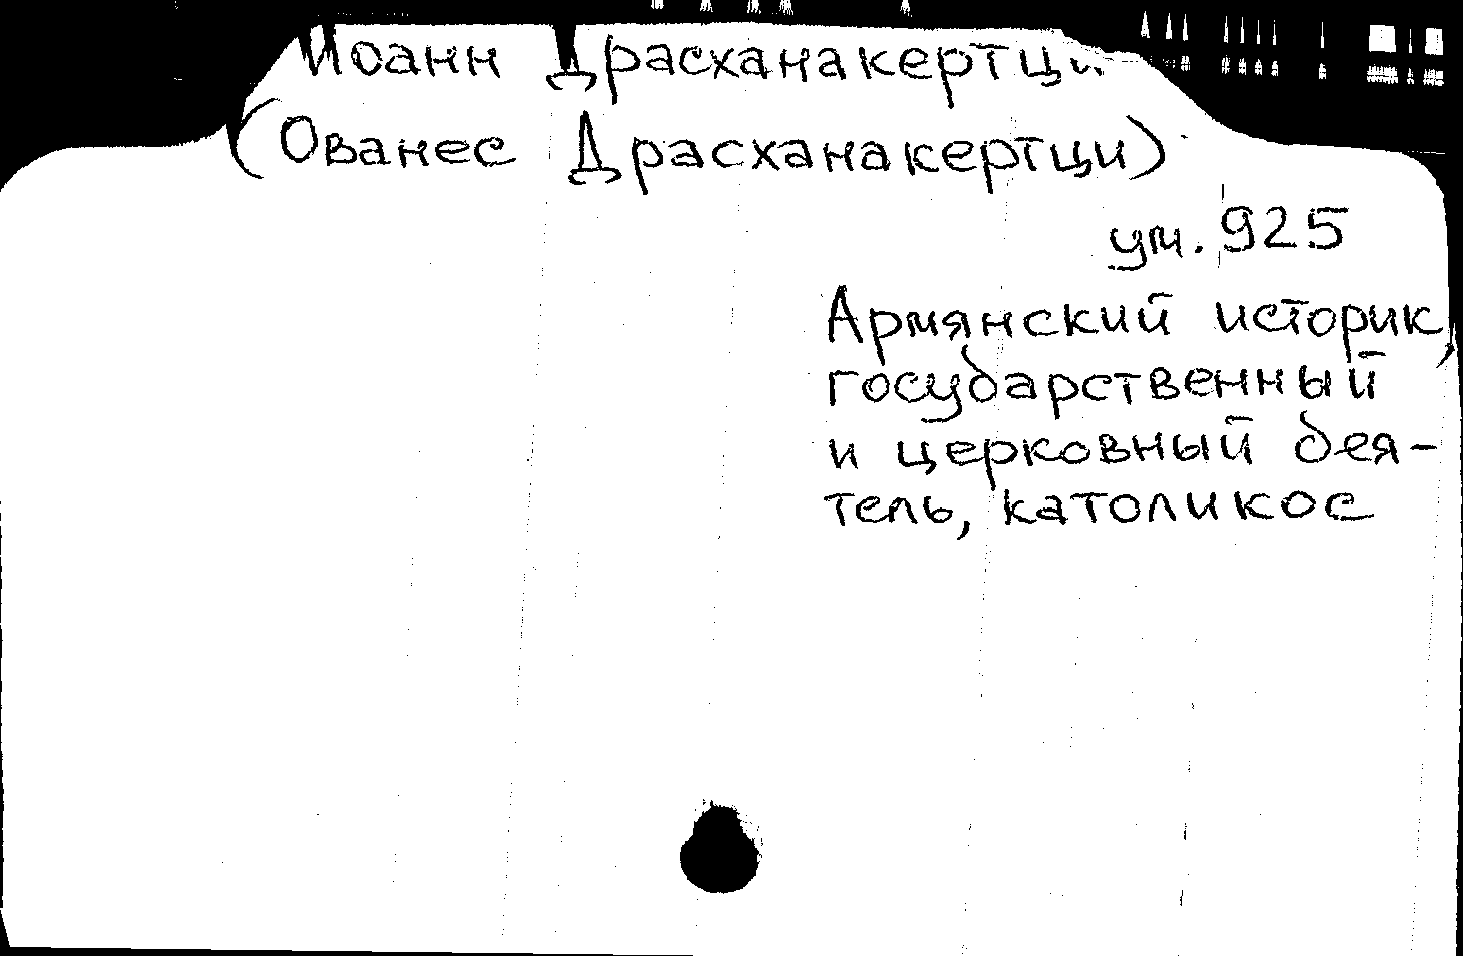 Иоанн Драсханакертци
(Ованес Драсханакертци)
ум. 925
Армянский историк,
государственный
и церковный дея-
тель, католикос